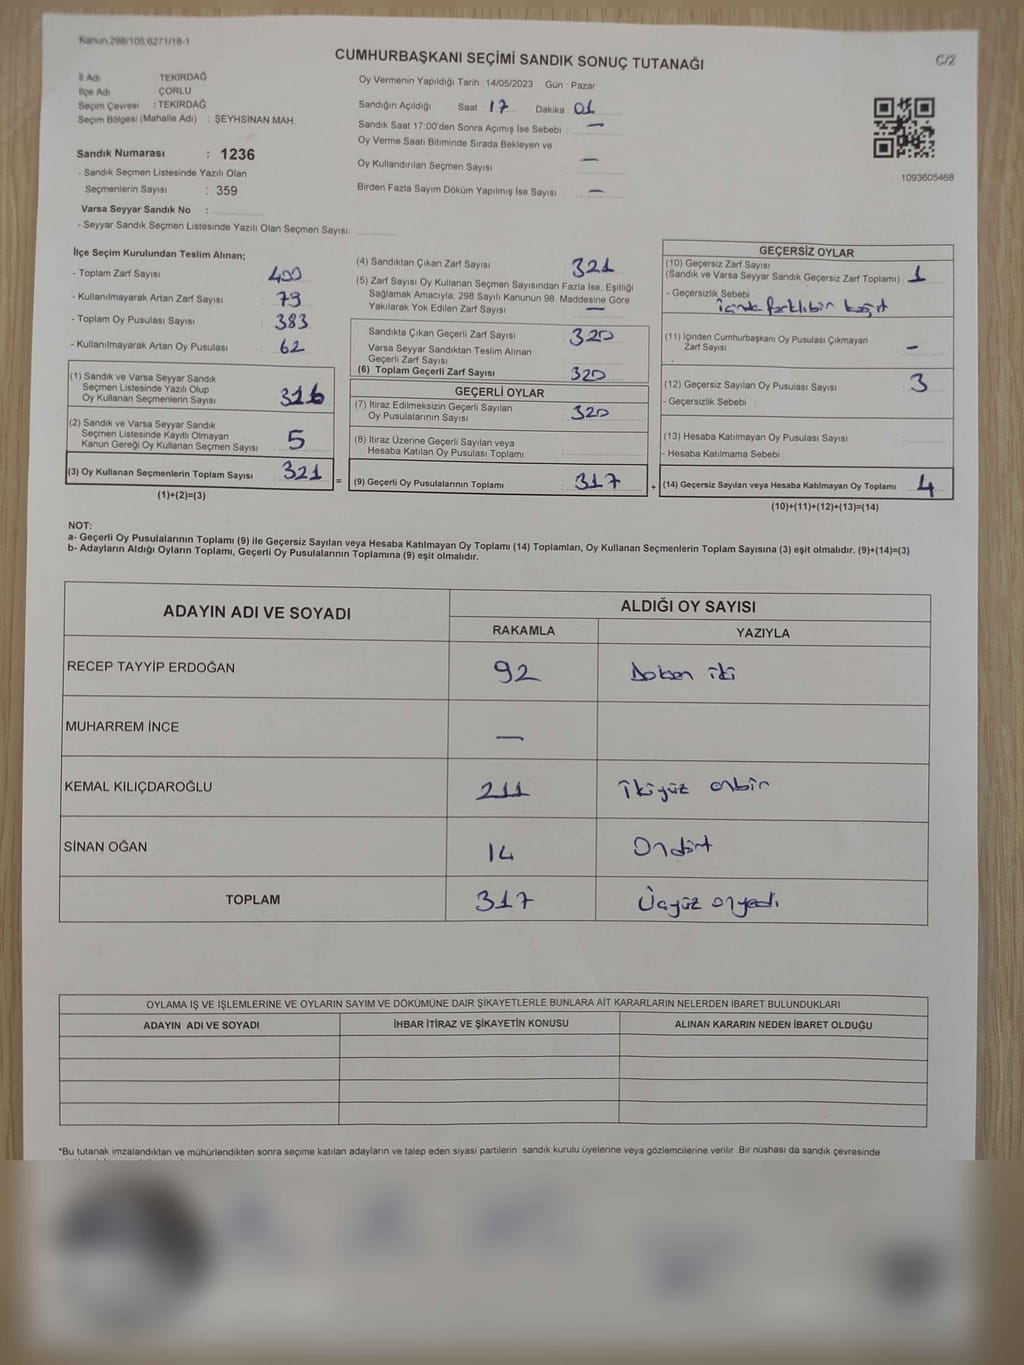 Kanun.298/105.6271/18-1
CUMHURBAŞKANI SEÇİMİ SANDIK SONUÇ TUTANAĞI
C/2
İl Adı : TEKİRDAĞ
İlçe Adı : ÇORLU
Seçim Çevresi : TEKİRDAĞ
Seçim Bölgesi (Mahalle Adı) : ŞEYHSİNAN MAH.
Sandık Numarası : 1236
- Sandık Seçmen Listesinde Yazılı Olan
Seçmenlerin Sayısı : 359
Varsa Seyyar Sandık No :
- Seyyar Sandık Seçmen Listesinde Yazılı Olan Seçmen Sayısı:
Oy Vermenin Yapıldığı Tarih : 14/05/2023 Gün : Pazar
Sandığın Açıldığı Saat : 17 Dakika : 01
Sandık Saat 17:00'den Sonra Açımış İse Sebebi : —
Oy Verme Saati Bitiminde Sırada Bekleyen ve
Oy Kullandırılan Seçmen Sayısı : —
Birden Fazla Sayım Döküm Yapılmış İse Sayısı : —
1093605468
İlçe Seçim Kurulundan Teslim Alınan;
- Toplam Zarf Sayısı : 400
- Kullanılmayarak Artan Zarf Sayısı : 79
- Toplam Oy Pusulası Sayısı : 383
- Kullanılmayarak Artan Oy Pusulası : 62
(1) Sandık ve Varsa Seyyar Sandık
Seçmen Listesinde Yazılı Olup
Oy Kullanan Seçmenlerin Sayısı : 316
(2) Sandık ve Varsa Seyyar Sandık
Seçmen Listesinde Kayıtlı Olmayan
Kanun Gereği Oy Kullanan Seçmen Sayısı : 5
(3) Oy Kullanan Seçmenlerin Toplam Sayısı : 321
(1)+(2)=(3)
=
(4) Sandıktan Çıkan Zarf Sayısı : 321
(5) Zarf Sayısı Oy Kullanan Seçmen Sayısından Fazla İse, Eşitliği
Sağlamak Amacıyla; 298 Sayılı Kanunun 98. Maddesine Göre
Yakılarak Yok Edilen Zarf Sayısı : —
Sandıkta Çıkan Geçerli Zarf Sayısı : 320
Varsa Seyyar Sandıktan Teslim Alınan
Geçerli Zarf Sayısı :
(6) Toplam Geçerli Zarf Sayısı : 320
GEÇERLİ OYLAR
(7) İtiraz Edilmeksizin Geçerli Sayılan
Oy Pusulalarının Sayısı : 320
(8) İtiraz Üzerine Geçerli Sayılan veya
Hesaba Katılan Oy Pusulası Toplamı :
(9) Geçerli Oy Pusulalarının Toplamı : 317
+
GEÇERSİZ OYLAR
(10) Geçersiz Zarf Sayısı
(Sandık ve Varsa Seyyar Sandık Geçersiz Zarf Toplamı) : 1
- Geçersizlik Sebebi :
içinde farklı bir kağıt
(11) İçinden Cumhurbaşkanı Oy Pusulası Çıkmayan
Zarf Sayısı : –
(12) Geçersiz Sayılan Oy Pusulası Sayısı : 3
- Geçersizlik Sebebi :
(13) Hesaba Katılmayan Oy Pusulası Sayısı :
- Hesaba Katılmama Sebebi :
(14) Geçersiz Sayılan veya Hesaba Katılmayan Oy Toplamı : 4
(10)+(11)+(12)+(13)=(14)
NOT:
a- Geçerli Oy Pusulalarının Toplamı (9) ile Geçersiz Sayılan veya Hesaba Katılmayan Oy Toplamı (14) Toplamları, Oy Kullanan Seçmenlerin Toplam Sayısına (3) eşit olmalıdır. (9)+(14)=(3)
b- Adayların Aldığı Oyların Toplamı, Geçerli Oy Pusulalarının Toplamına (9) eşit olmalıdır.
ADAYIN ADI VE SOYADI ALDIĞI OY SAYISI
RAKAMLA YAZIYLA
RECEP TAYYİP ERDOĞAN 92 Doksan iki
MUHARREM İNCE —
KEMAL KILIÇDAROĞLU 211 İkiyüz onbir
SİNAN OĞAN 14 Ondört
TOPLAM 317 Üçyüz onyedi
OYLAMA İŞ VE İŞLEMLERİNE VE OYLARIN SAYIM VE DÖKÜMÜNE DAİR ŞİKAYETLERLE BUNLARA AİT KARARLARIN NELERDEN İBARET BULUNDUKLARI
ADAYIN ADI VE SOYADI İHBAR İTİRAZ VE ŞİKAYETİN KONUSU ALINAN KARARIN NEDEN İBARET OLDUĞU
*Bu tutanak imzalandıktan ve mühürlendikten sonra seçime katılan adayların ve talep eden siyasi partilerin sandık kurulu üyelerine veya gözlemcilerine verilir. Bir nüshası da sandık çevresinde